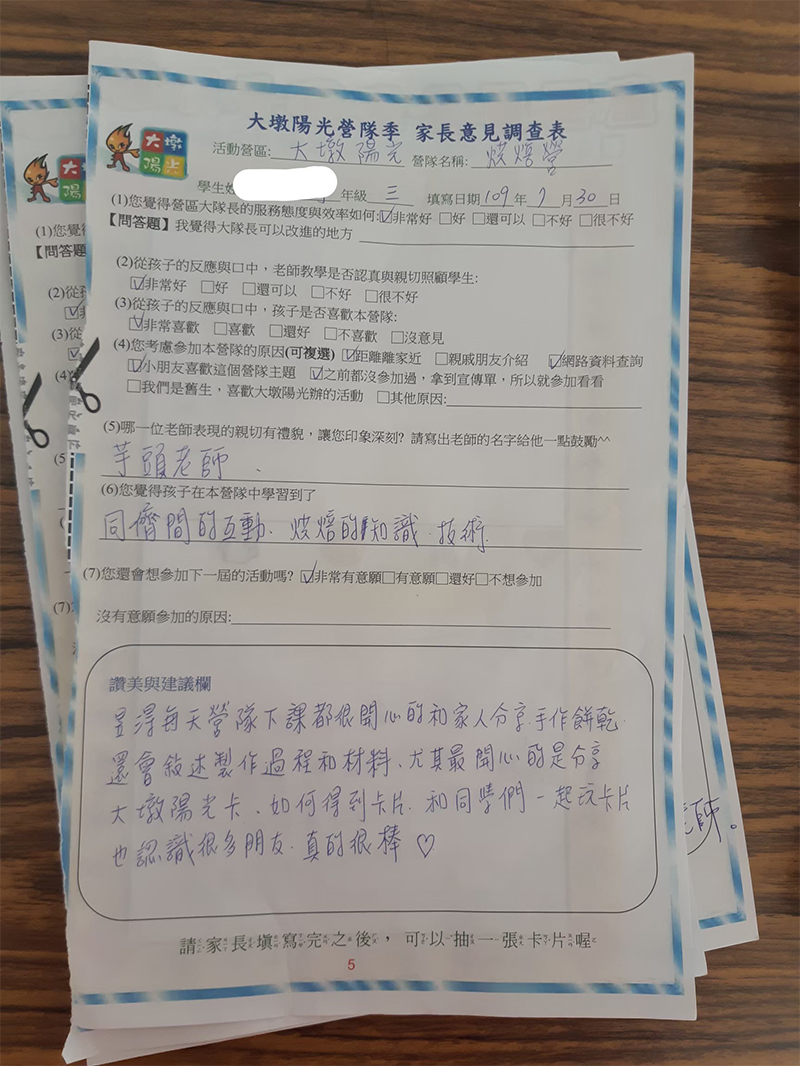 大墩
陽光
大墩陽光營隊季 家長意見調查表
活動營區: 大墩陽光 營隊名稱: 烘焙營
學生姓 年級 三 填寫日期 109 年 7 月 30 日
(1)您覺得營區大隊長的服務態度與效率如何:☑非常好 □好 □還可以 □不好 □很不好
【問答題】我覺得大隊長可以改進的地方
(2)從孩子的反應與口中，老師教學是否認真與親切照顧學生:
☑非常好 □好 □還可以 □不好 □很不好
(3)從孩子的反應與口中，孩子是否喜歡本營隊:
☑非常喜歡 □喜歡 □還好 □不喜歡 □沒意見
(4)您考慮參加本營隊的原因(可複選) ☑距離離家近 □親戚朋友介紹 ☑網路資料查詢
☑小朋友喜歡這個營隊主題 ☑之前都沒參加過，拿到宣傳單，所以就參加看看
□我們是舊生，喜歡大墩陽光辦的活動 □其他原因:
(5)哪一位老師表現的親切有禮貌，讓您印象深刻? 請寫出老師的名字給他一點鼓勵^^
芋頭老師、
(6)您覺得孩子在本營隊中學習到了
同儕間的互動、烘焙的知識、技術.
(7)您還會想參加下一屆的活動嗎? ☑非常有意願□有意願□還好□不想參加
沒有意願參加的原因:
讚美與建議欄
昱淂每天營隊下課都很開心的和家人分享手作餅乾.
還會敘述製作過程和材料、尤其最開心的是分享
大墩陽光卡、如何得到卡片、和同學們一起玩卡片
也認識很多朋友.真的很棒♡
請家長填寫完之後，可以抽一張卡片喔
5
大
陽
(1)您覺
【問答題
(2)從孩
(3)從
(4)
(5)
(7)
師。